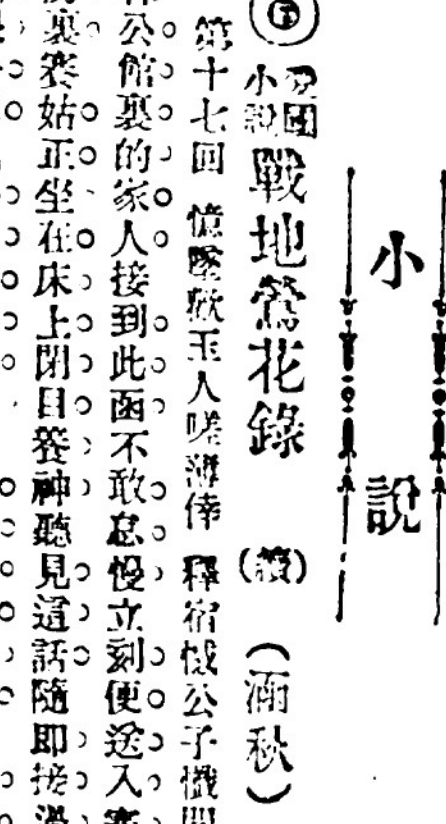 小說
愛國小說 戰地鶯花錄 (續) (涵秋)
第十七回 憶墜歡玉人嗟薄倖 釋宿憾公子懺
公館裏的家人接到此函不敢怠慢立刻便送入
裏賽姑正坐在床上閉目養神聽見這話隨即接過